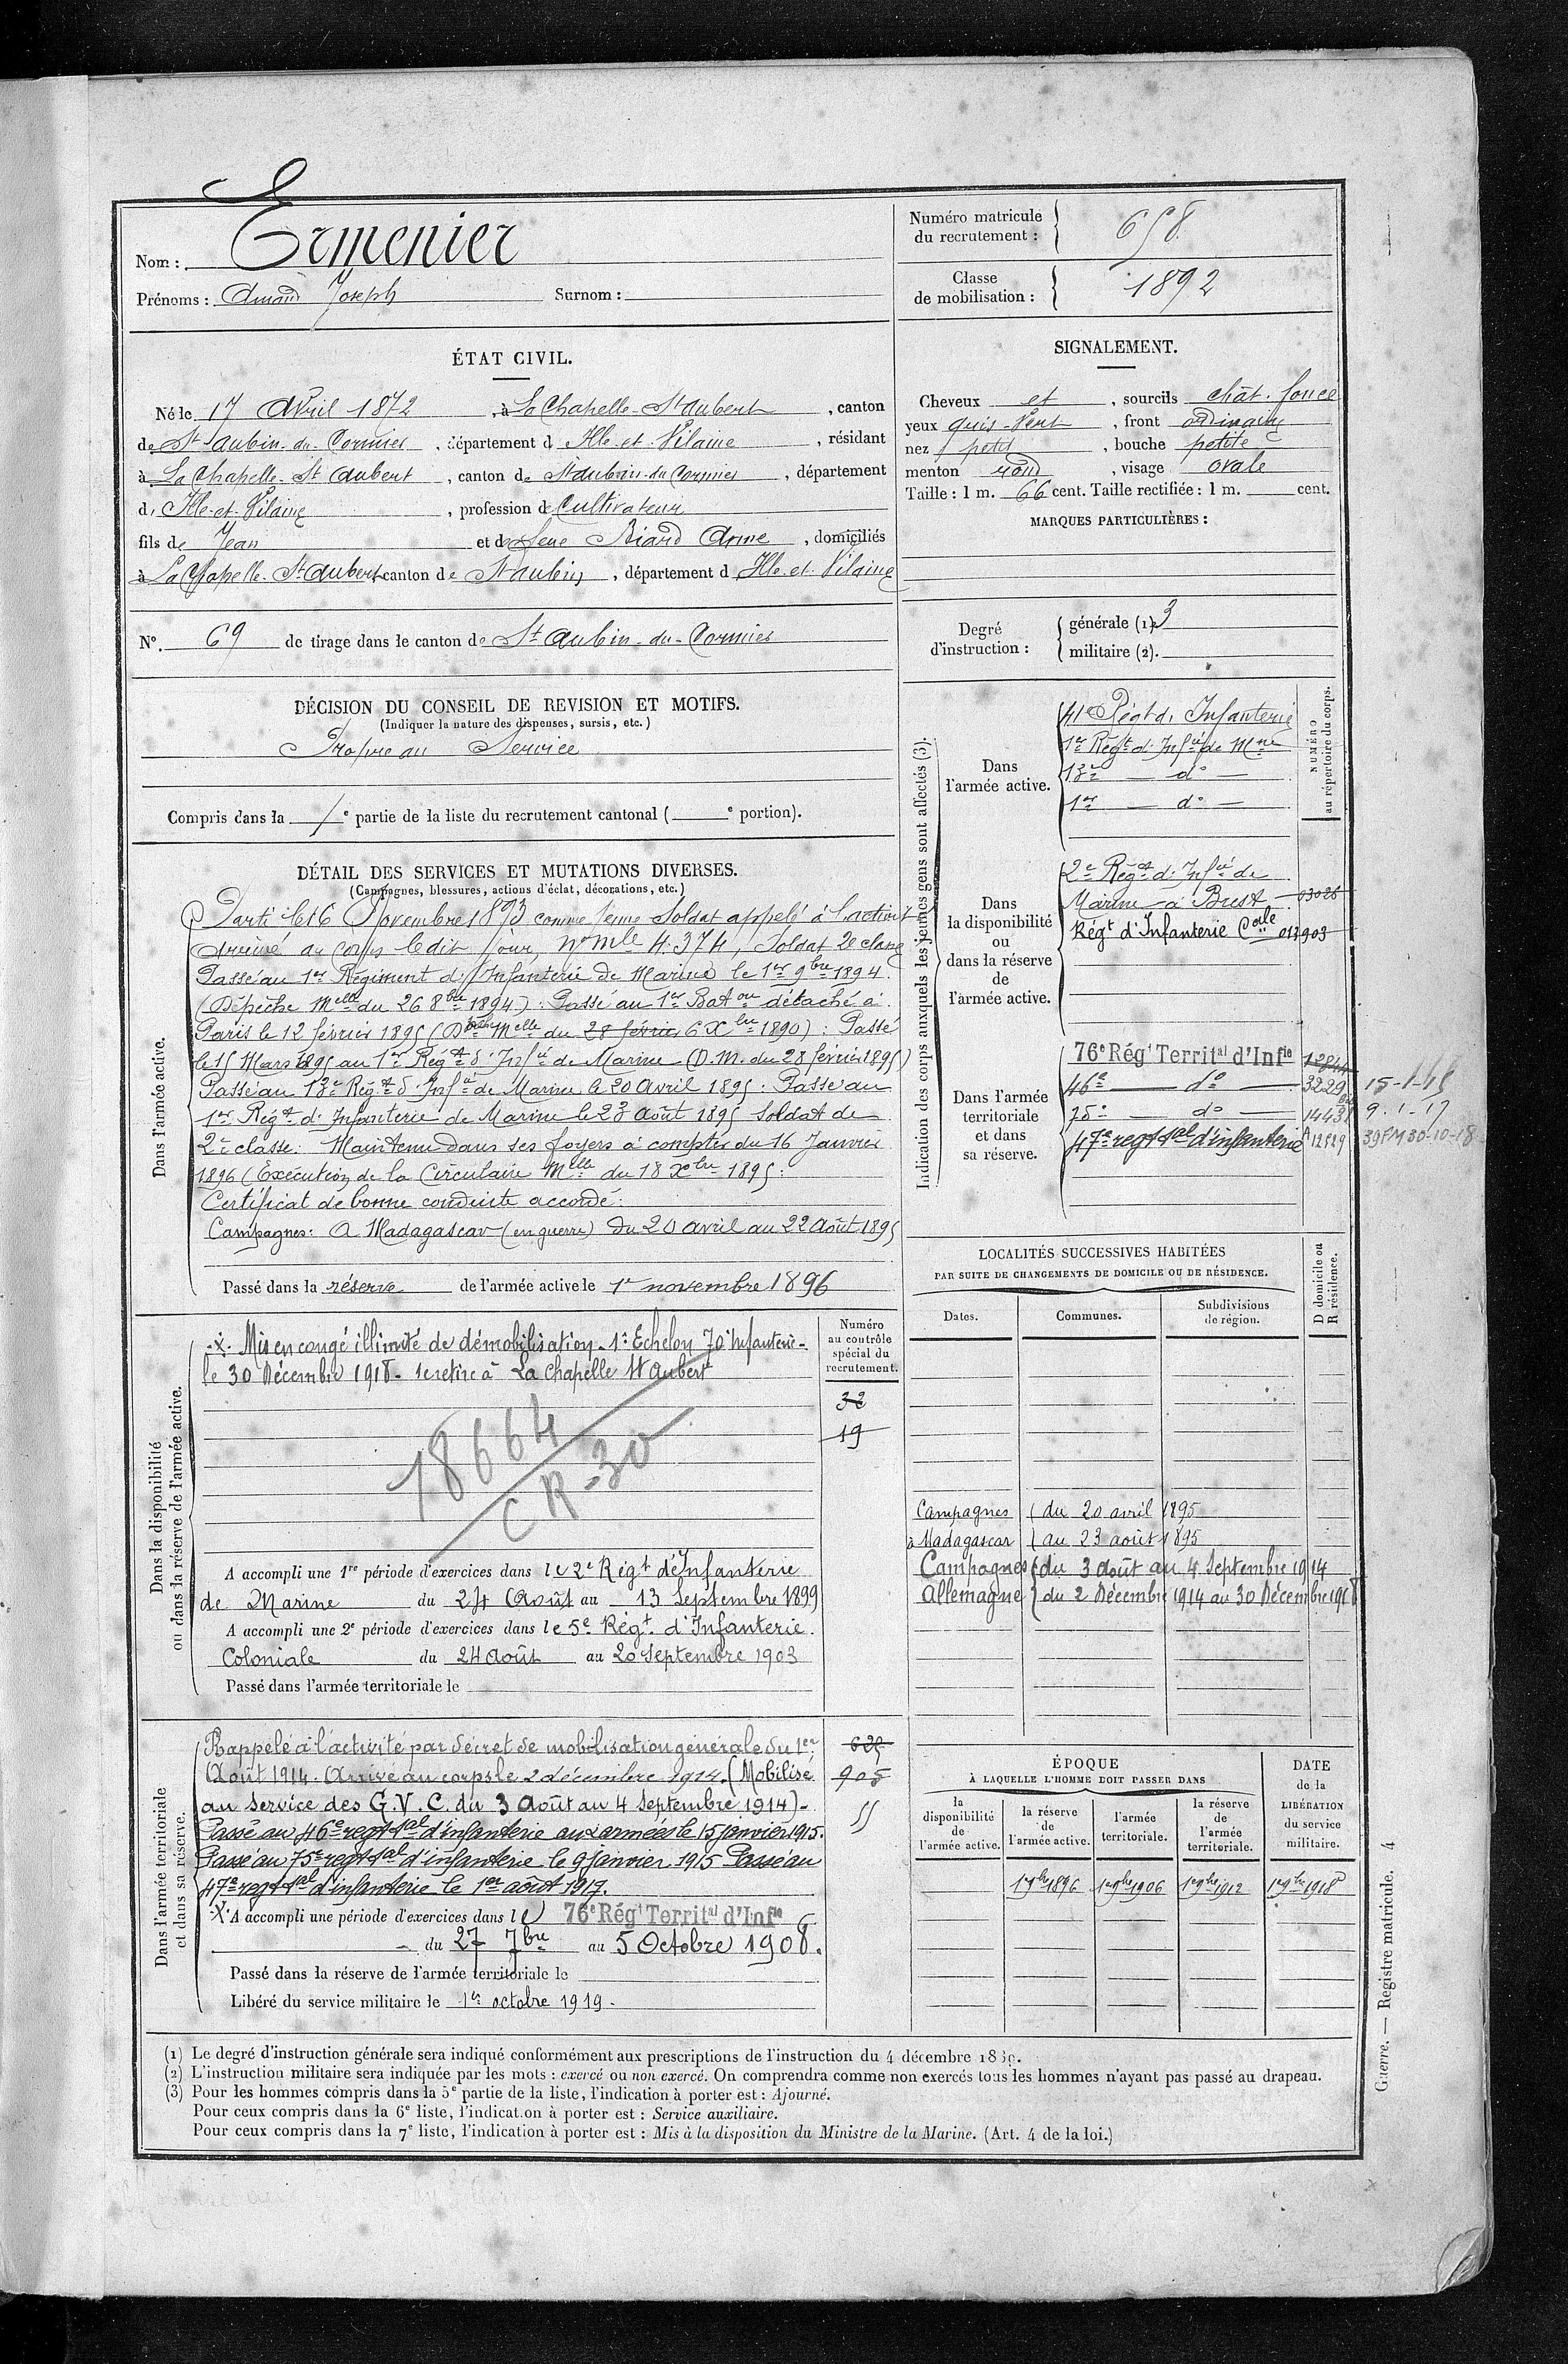 Nom : Ermenier
Prénoms : Amand Joseph Surnom :
Numéro matricule du recrutement : 658
Classe de mobilisation : 1892
ÉTAT CIVIL.
Né le 17 Avril 1872, à La Chapelle-St Aubert, canton
de St Aubin-du-Cormier, département d Ille-et-Vilaine, résidant
à La Chapelle-St Aubert, canton de St Aubin-du-Cormier, département
d Ille-et-Vilaine, profession de Cultivateur
fils de Jean et de feue Riard Anne, domiciliés
à La Chapelle-St Aubert canton de St Aubin, département d Ille-et-Vilaine
N° 69 de tirage dans le canton de St Aubin-du-Cormier
DÉCISION DU CONSEIL DE REVISION ET MOTIFS.
(Indiquer la nature des dispenses, sursis, etc.)
Propre au Service
Compris dans la 1e partie de la liste du recrutement cantonal ( e portion).
SIGNALEMENT.
Cheveux et, sourcils chât. foncé
yeux gris-vert, front ordinaire
nez petit, bouche petite
menton rond, visage ovale
Taille : 1 m. 66 cent. Taille rectifiée : 1 m. cent.
MARQUES PARTICULIÈRES :
Degré d'instruction : générale (1) 3
militaire (2).
DÉTAIL DES SERVICES ET MUTATIONS DIVERSES.
(Campagnes, blessures, actions d'éclat, décorations, etc.)
Dans l'armée active.
Parti le 16 Novembre 1893 comme jeune Soldat appelé à l'activité
Arrivé au corps le dit jour, n° mle 4.374, Soldat 2e classe
Passé au 1er Régiment d'Infanterie de Marine le 1er 9bre 1894.
(Dépêche Melle du 26 8bre 1894) : Passé au 1er Baton détaché à
Paris le 12 février 1895 (Dpche Melle du 28 février 6 Xbre 1890) : Passé
le 15 Mars 1895 au 1er Régt d'Infie de Marine (D.M. du 28 février 1895)
Passé au 13e Régt d'Infie de Marine le 20 Avril 1895 : Passé au
1er Régt d'Infanterie de Marine le 23 Août 1895 Soldat de
2e classe. Maintenu dans ses foyers à compter du 16 Janvier
1896 (Exécution de la Circulaire Melle du 18 Xbre 1895 :
Certificat de bonne conduite accordé :
Campagnes : A Madagascar (en guerre) du 20 avril au 22 Août 1895
Passé dans la réserve de l'armée active le 1er novembre 1896
Indication des corps auxquels les jeunes gens sont affectés (3).
NUMÉRO au répertoire du corps.
Dans l'armée active.
41e Régt d'Infanterie
1er Régt d'Infie de Mne
13e — do —
1er — do —
Dans la disponibilité ou dans la réserve de l'armée active.
2e Régt d'Infie de
Marine à Brest 03026
Régt d'Infanterie Colle 013903
Dans l'armée territoriale et dans sa réserve.
76e Régt Territal d'Infie
46e — do — 3229 15-1-15
75e — do — 14431 9-1-17
47e regt tal d'infanterie A 12529 39 PM 30-10-18
LOCALITÉS SUCCESSIVES HABITÉES
PAR SUITE DE CHANGEMENTS DE DOMICILE OU DE RÉSIDENCE.
Dates. Communes. Subdivisions de région. D domicile ou R résidence.
Campagnes (du 20 avril 1895
à Madagascar (au 23 août 1895
Campagnes (du 3 août au 4 Septembre 1914
Allemagne ) du 2 Décembre 1914 au 30 Décembre 1918
Dans la disponibilité ou dans la réserve de l'armée active.
Numéro au contrôle spécial du recrutement.
.X. Mis en congé illimité de démobilisation. 1er Échelon 70e Infanterie-
le 30 Décembre 1918- se retire à La Chapelle St Aubert
32
19
18664
CR-30
A accompli une 1re période d'exercices dans le 2e Régt d'Infanterie
de Marine du 24 Août au 13 Septembre 1899
A accompli une 2e période d'exercices dans le 5e Régt d'Infanterie.
Coloniale du 24 août au 20 Septembre 1903
Passé dans l'armée territoriale le
Dans l'armée territoriale et dans sa réserve.
Rappelé à l'activité par décret de mobilisation générale du 1er
Août 1914. Arrivé au corps le 2 décembre 1914. (Mobilisé 905
au service des G.V.C. du 3 Août au 4 Septembre 1914)- 55
Passé au 46e regt tal d'infanterie aux armées le 15 janvier 1915.
Passé au 75e regt tal d'infanterie le 9 Janvier 1915 Passé au
47e regt tal d'infanterie le 1er août 1917.
.X. A accompli une période d'exercices dans le 76e Régt Territal d'Infie
du 27 7bre au 5 Octobre 1908.
Passé dans la réserve de l'armée territoriale le
Libéré du service militaire le 1er octobre 1919.
ÉPOQUE
À LAQUELLE L'HOMME DOIT PASSER DANS
la disponibilité de l'armée active. la réserve de l'armée active. l'armée territoriale. la réserve de l'armée territoriale.
DATE de la LIBÉRATION du service militaire.
1er 9bre 1896 1er 9bre 1906 1er 9bre 1912 1er 9bre 1918
(1) Le degré d'instruction générale sera indiqué conformément aux prescriptions de l'instruction du 4 décembre 1889.
(2) L'instruction militaire sera indiquée par les mots : exercé ou non exercé. On comprendra comme non exercés tous les hommes n'ayant pas passé au drapeau.
(3) Pour les hommes compris dans la 5e partie de la liste, l'indication à porter est : Ajourné.
Pour ceux compris dans la 6e liste, l'indication à porter est : Service auxiliaire.
Pour ceux compris dans la 7e liste, l'indication à porter est : Mis à la disposition du Ministre de la Marine. (Art. 4 de la loi.)
Guerre. — Registre matricule. 4